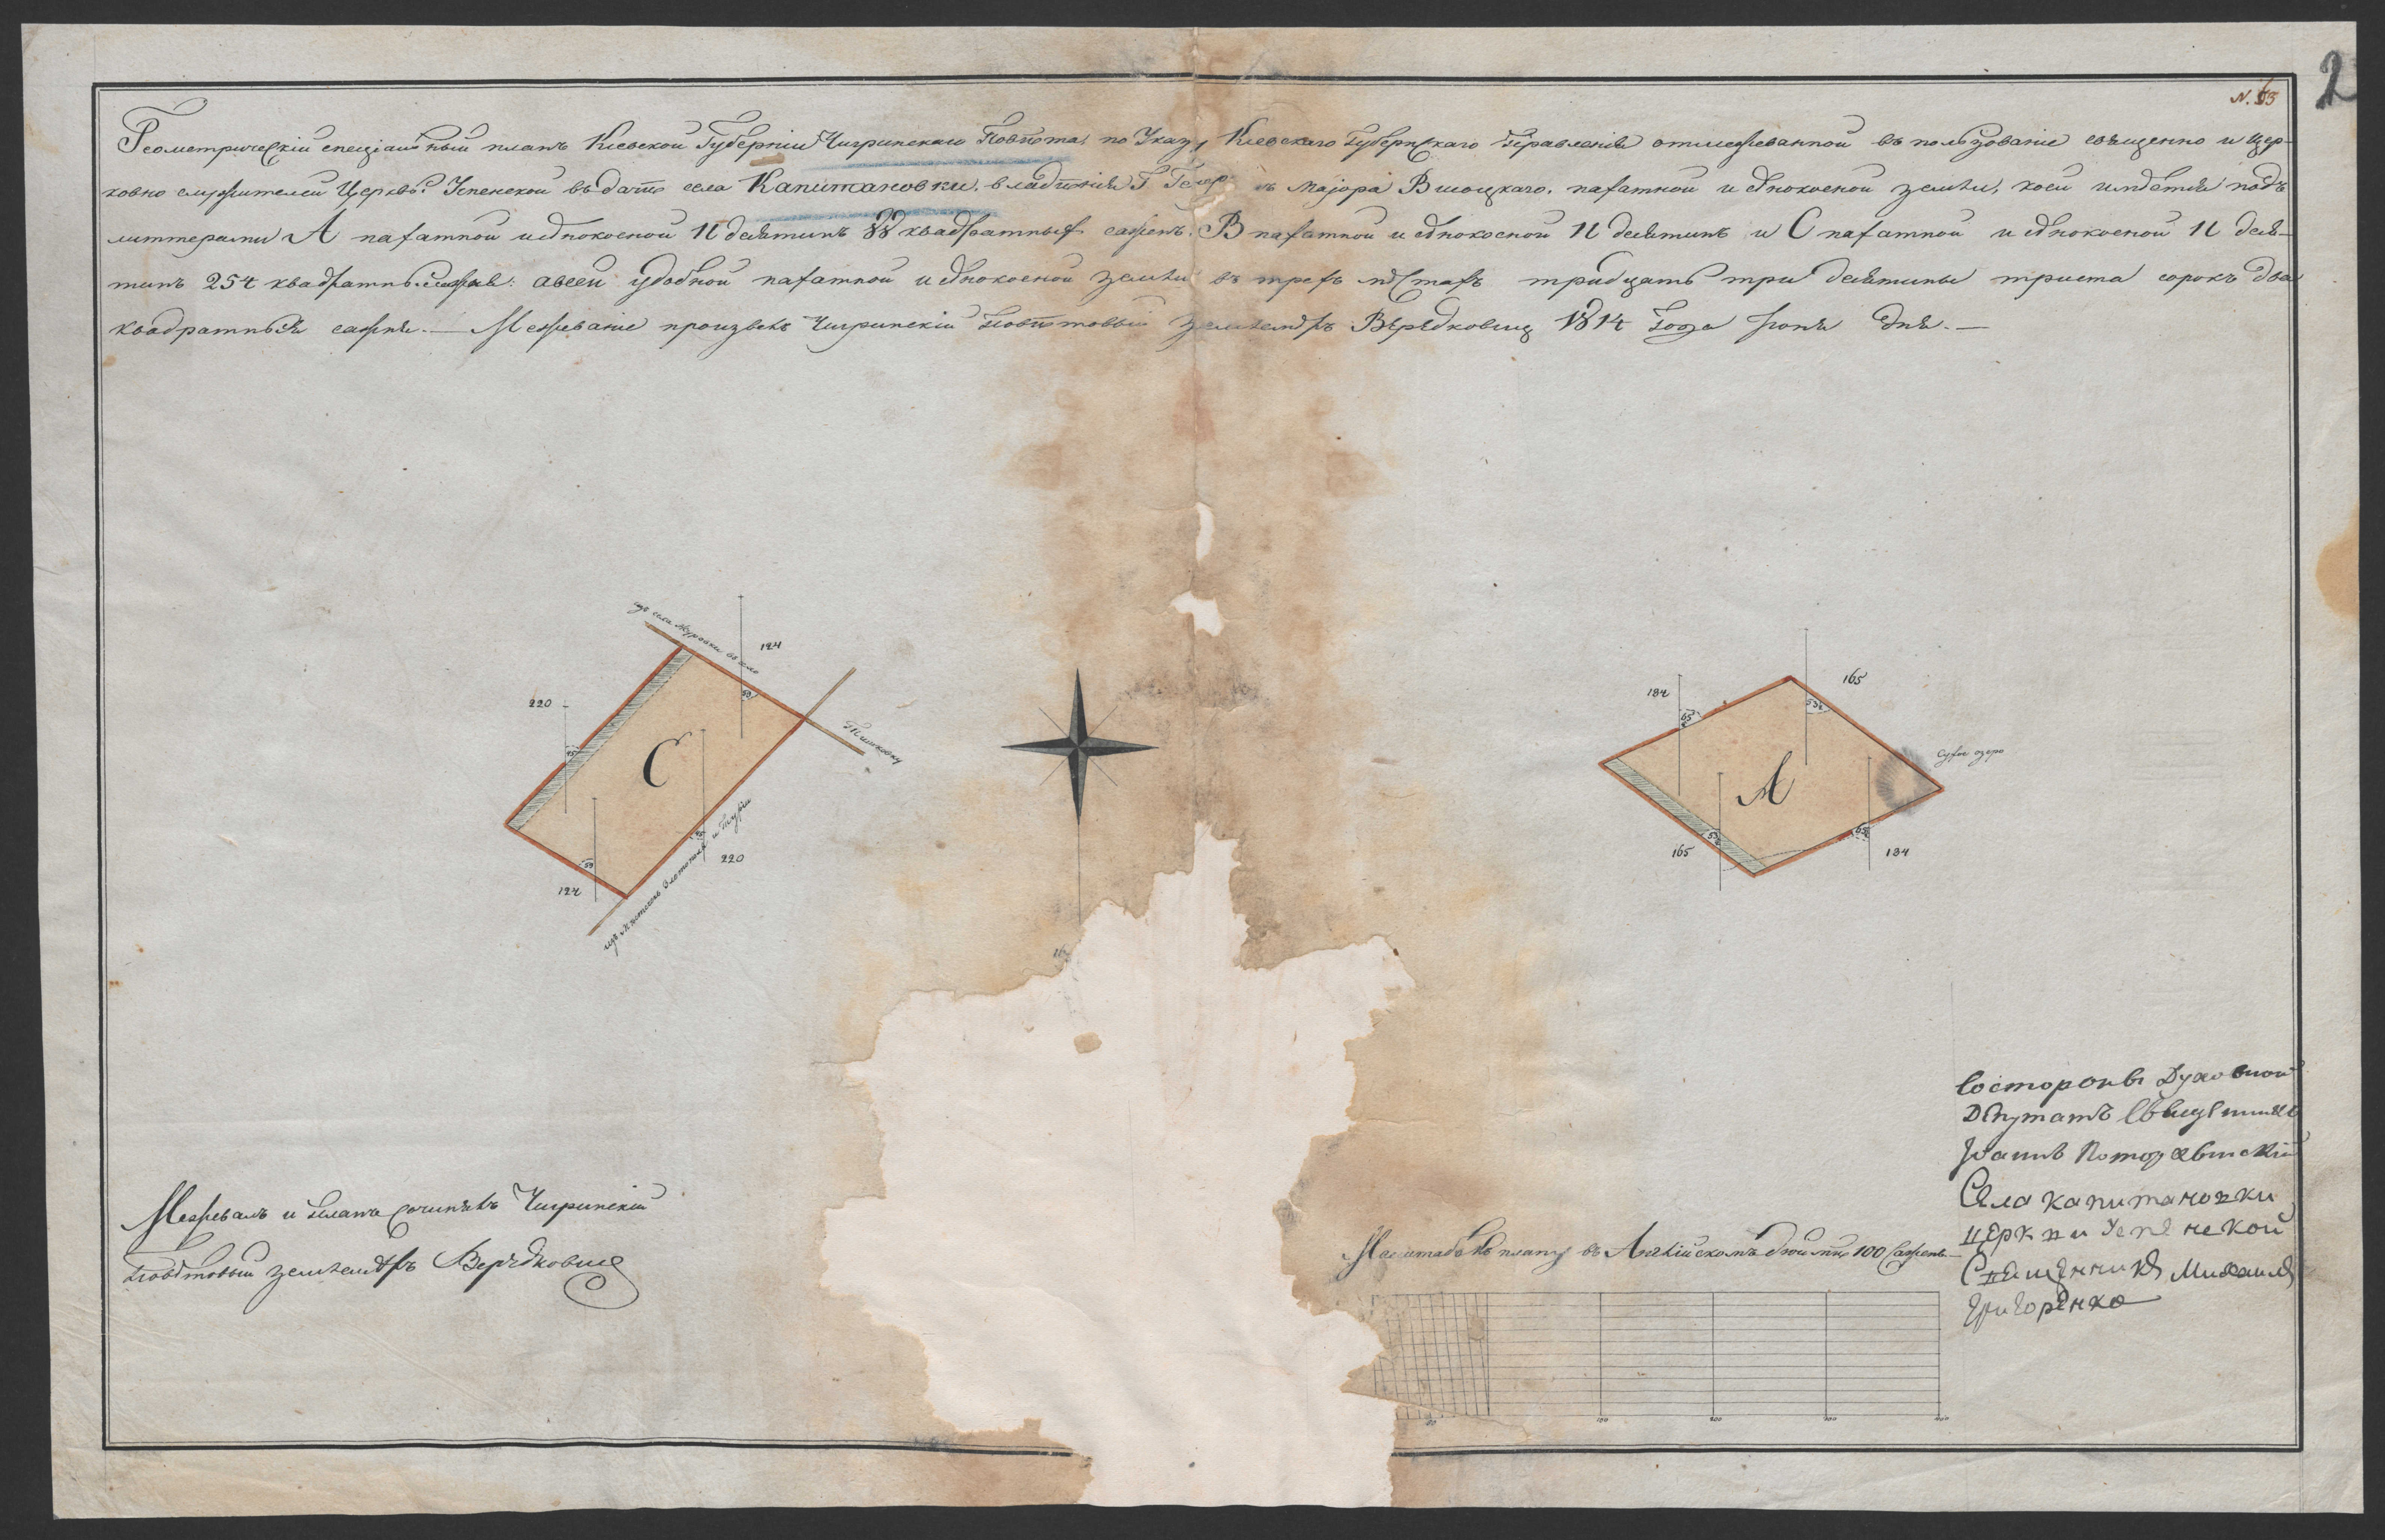 N. 63
2
Геометрическій спеціальный планъ Кіевской Губерніи Чигринскаго Повѣта, по Указу Кіевскаго Губернскаго Правленія отмежеванной въ пользованіе священно и цер-
ковно служителей Церквѣ Успенской въ датѣ села Капитановки, владѣнія Г Генер ъ Маіора Висоцкаго, пахатной и сѣнокосной земли, коей имѣется подъ
литтерами А пахатной и сѣнокосной 11 десятинъ 88 квадратныхъ саженъ. В пахатной и сѣнокосной 11 десятинъ и С пахатной и сѣнокосной 11 деся-
тинъ 254 квадратны. сажнѣ: а всей удобной пахатной и сѣнокосной земли въ трехъ мѣстахъ тридцать три десятины триста сорокъ два
квадратныя сажня. — Межеваніе произвелъ Чигринскій Повѣтовый Землемѣръ Верѣдковичъ 1814 Года Іюня дня. —
изъ села Журовки въ село
124
220
53
45
С
Тишковку
45
220
53
124
изъ Мѣстечка Златополя и Турiи
165
184
65
53¼
А
Сухое озеро
165
53¼
65
184
Межевалъ и планъ сочинялъ Чигринскій
Повѣтовый землемѣръ Верѣдковичъ
Масштабъ въ плану въ Англійскомъ дюймѣ 100 Саженъ
50 100 200 300 400
Состороны Духовной
Депутатъ Священникъ
Іоаннъ
Села капитановки
церкви Успенской
Священникъ Михаилъ
Григоренко